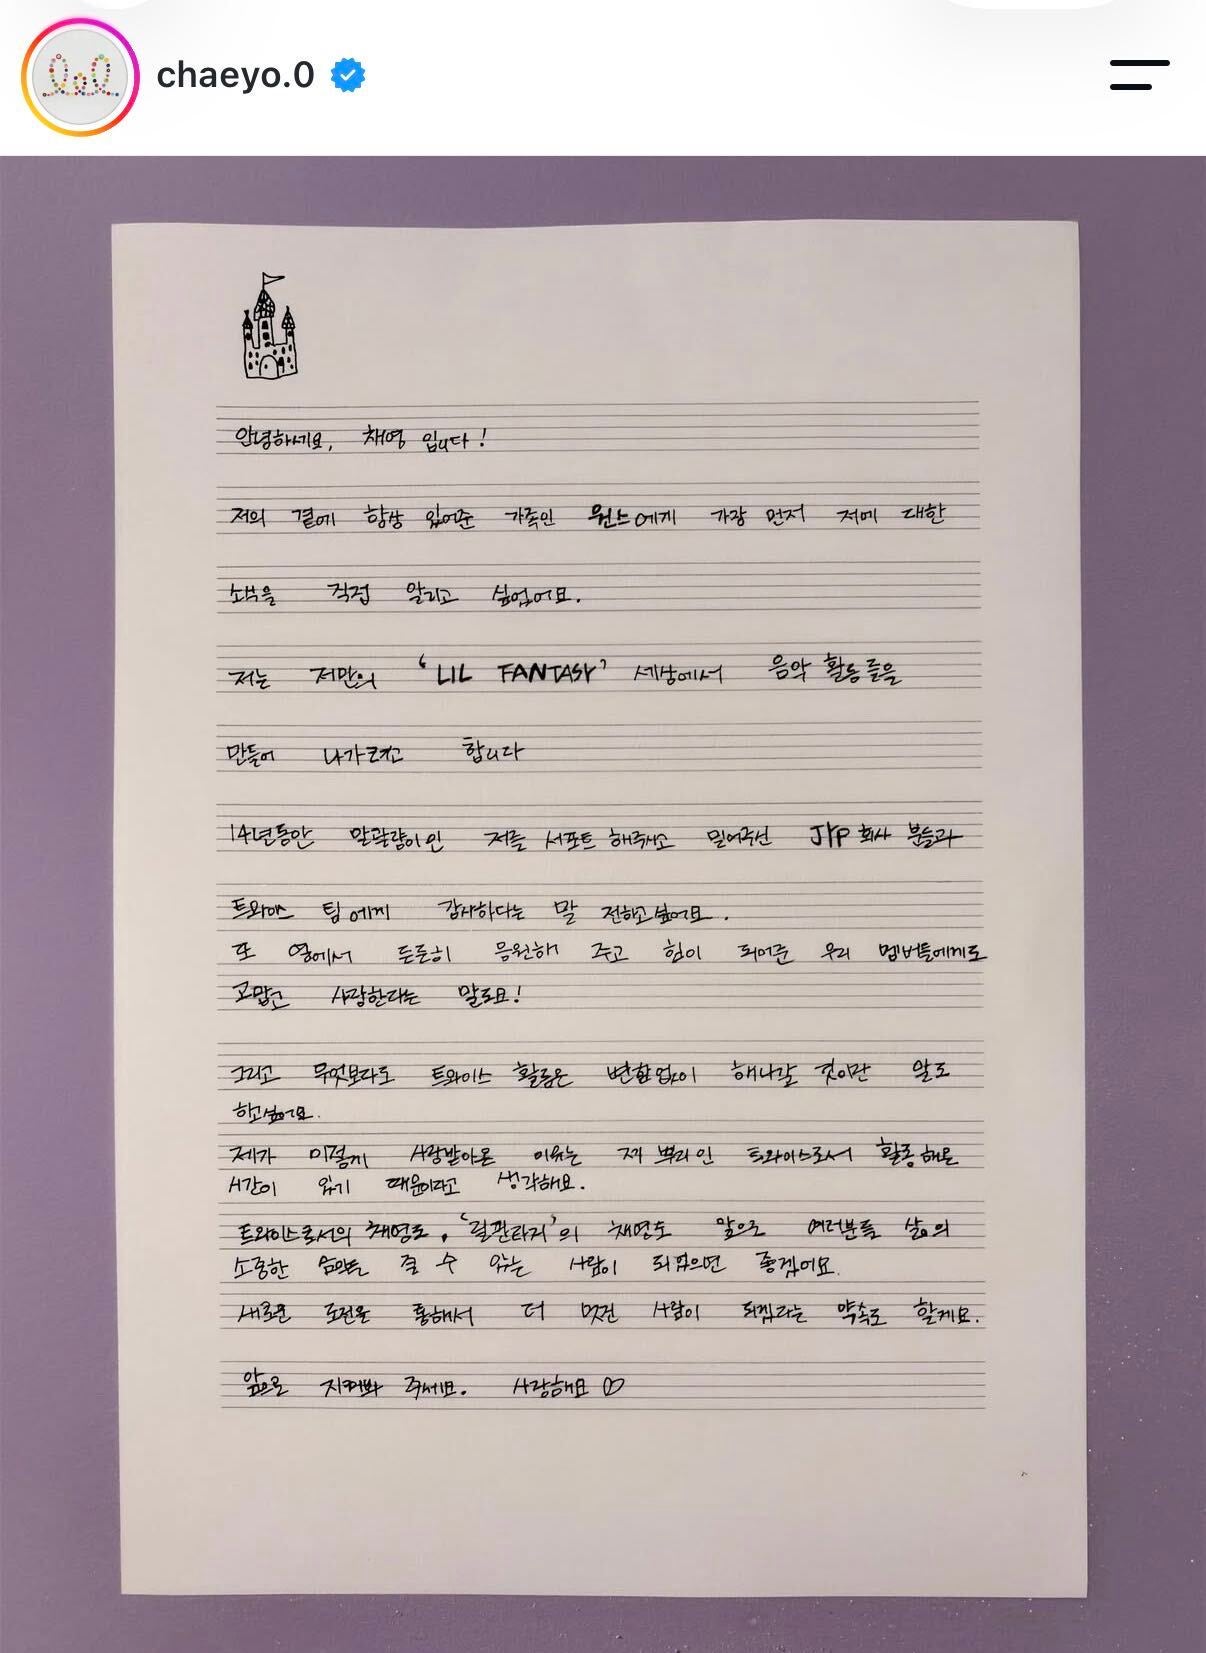 chaeyo.0
안녕하세요, 채영 입니다!
저의 곁에 항상 있어준 가족인 원스에게 가장 먼저 저에 대한
소식을 직접 알리고 싶었어요.
저는 저만의 'LIL FANTASY' 세상에서 음악 활동들을
만들어 나가려고 합니다
14년동안 말괄량이인 저를 서포트 해주시고 믿어주신 JYP 회사 분들과
트와이스 팀에게 감사하다는 말 전하고싶어요.
또 옆에서 든든히 응원해 주고 힘이 되어준 우리 멤버들에게도
고맙고 사랑한다는 말도요!
그리고 무엇보다도 트와이스 활동은 변함없이 해나갈 것이란 말도
하고싶어요.
제가 이렇게 사랑받아온 이유는 제 뿌리인 트와이스로서 활동해온
시간이 있기 때문이라고 생각해요.
트와이스로서의 채영도, '릴판타지'의 채영도 앞으로 여러분들 삶의
소중한 줄 수 있는 사람이 되었으면 좋겠어요.
새로운 도전을 통해서 더 멋진 사람이 되겠다는 약속도 할게요.
앞으로 지켜봐 주세요. 사랑해요 ♡